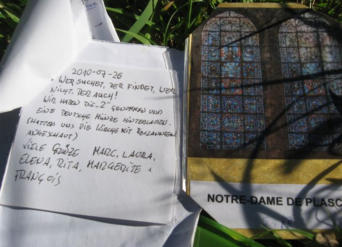 2010-07-26
"WER SUCHET, DER FINDET, WER
NICHT, DER AUCH!
WIR HABEN DIE "2" GENOMMEN UND
EINE DEUTSCHE MÜNZE HINTERLASSEN.
(HATTEN UNS DIE KIRCHE MIT
ANGESCHAUT)
VIELE GRÜßE MARC, LAURA,
ELENA, RITA, MARGERITE +
FRANÇOIS
NOTRE-DAME DE PLASC